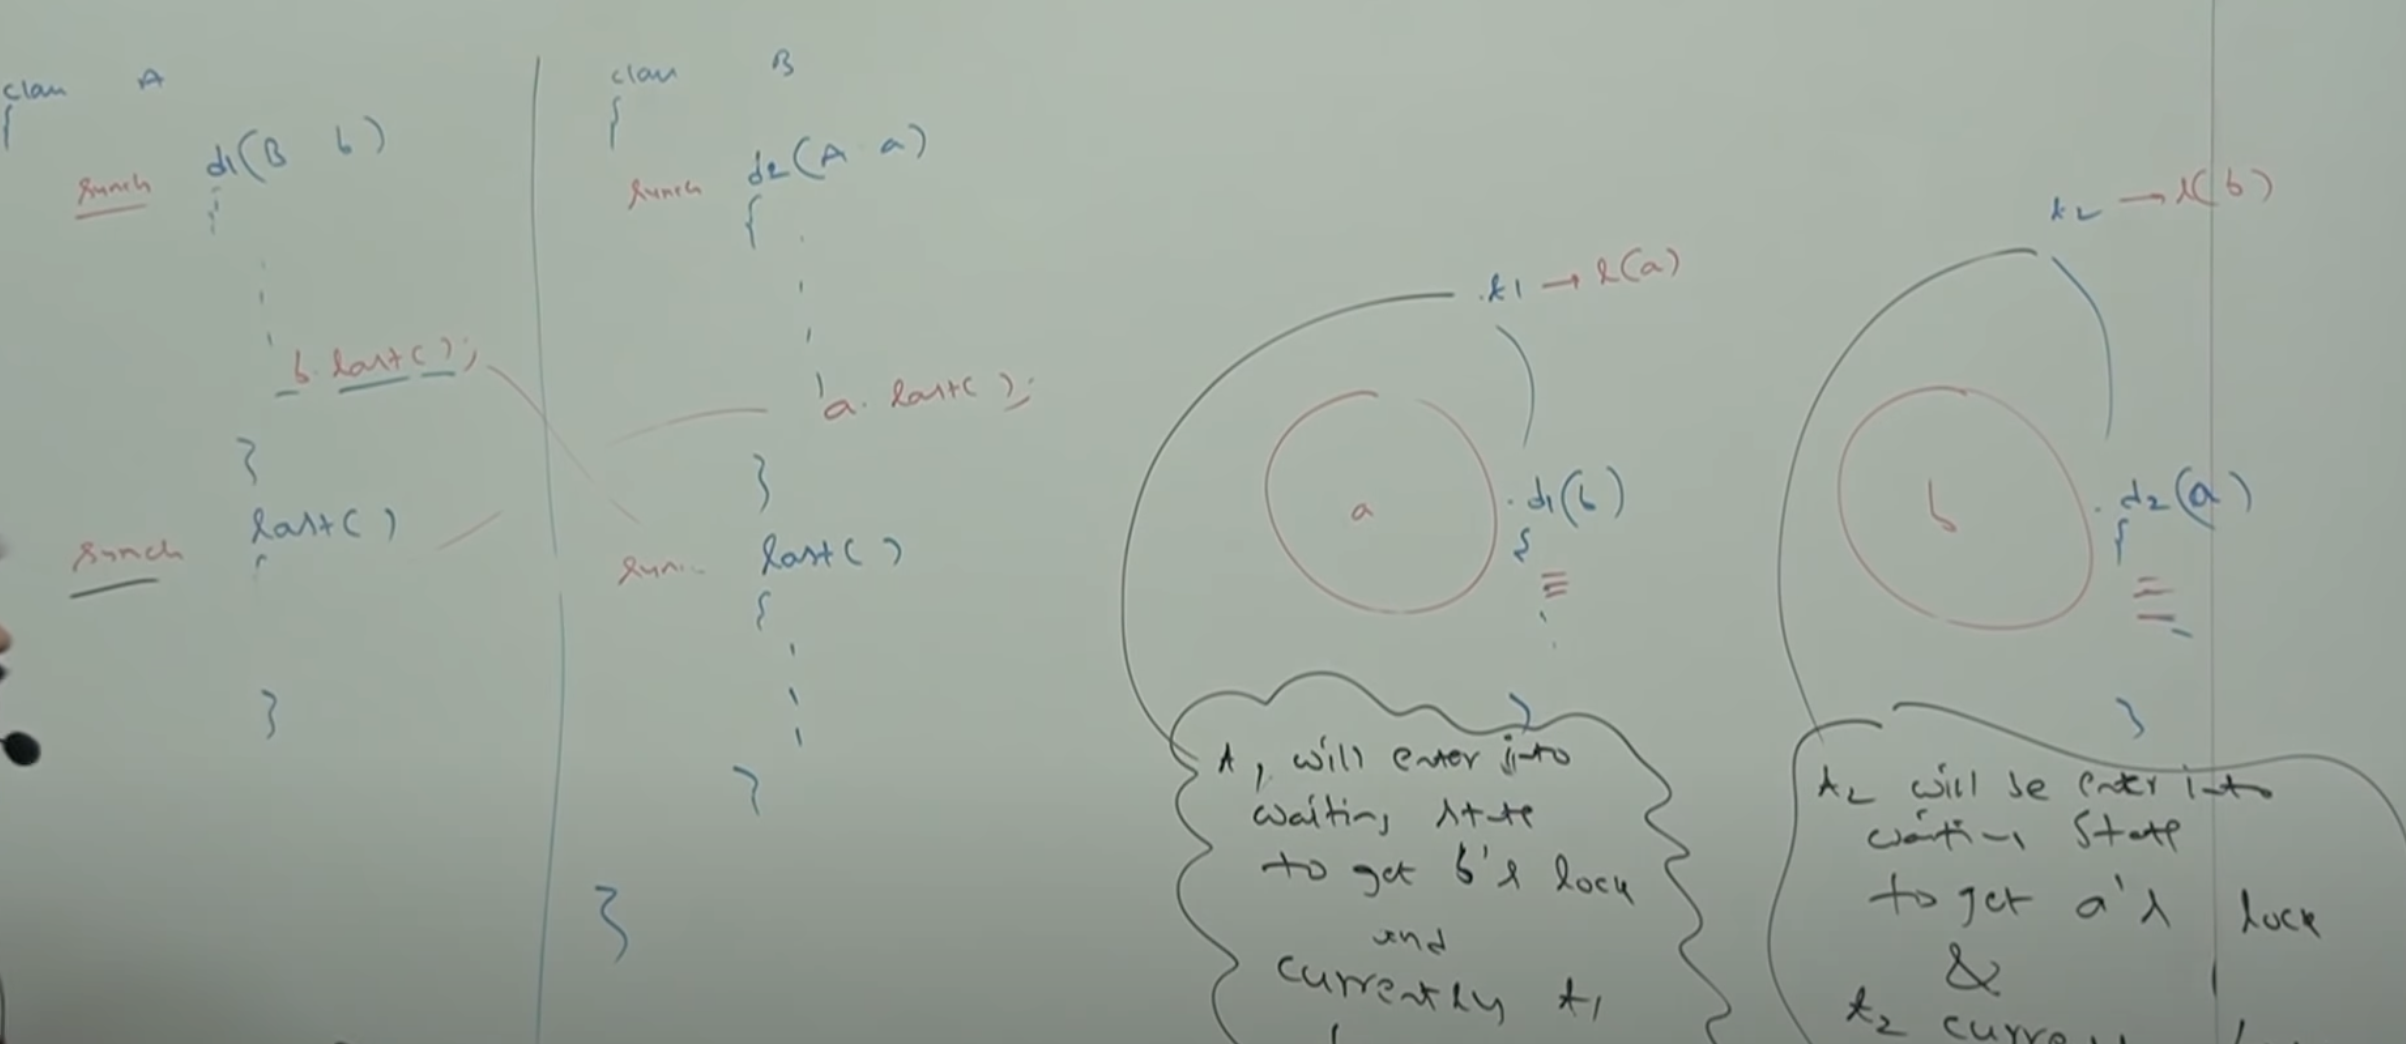 class A
{
synch d1(B b)
{
b.last();
}
synch last()
{
}
class B
{
synch d2(A a)
{
a.last();
}
sync last()
{
}
}
t1 → l(a)
a
d1(b)
{
}
t1 will enter into
waiting state
to get b's lock
and
currently t1
t2 → l(b)
b
d2(a)
{
}
t2 will be enter into
waiting state
to get a's lock
&
t2